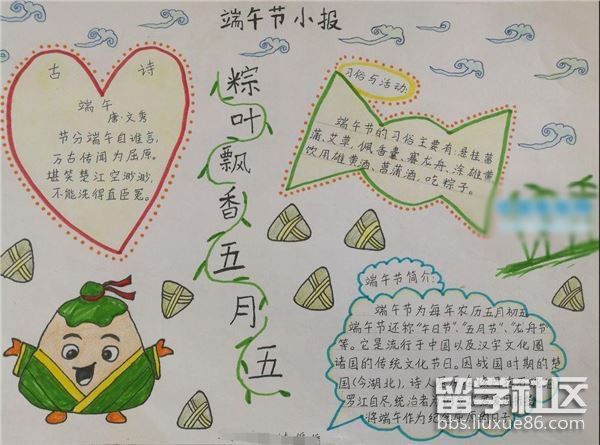 端午节小报
古诗
端午
唐·文秀
节分端午自谁言,
万古传闻为屈原。
堪笑楚江空渺渺,
不能洗得直臣冤。
粽叶飘香五月五
习俗与活动
端午节的习俗主要有:悬挂菖
蒲、艾草,佩香囊,赛龙舟,涂雄黄
饮用雄黄酒、菖蒲酒,吃粽子。
端午节简介:
端午节为每年农历五月初五
端午节还称“午日节”、“五月节”、“龙舟节”
等。它是流行于中国以及汉字文化圈
诸国的传统文化节日。因战国时期的楚
国(今湖北),诗人
罗江自尽,统治者为
将端午作为纪念屈原的日子
留学社区
bbs.liuxue86.com